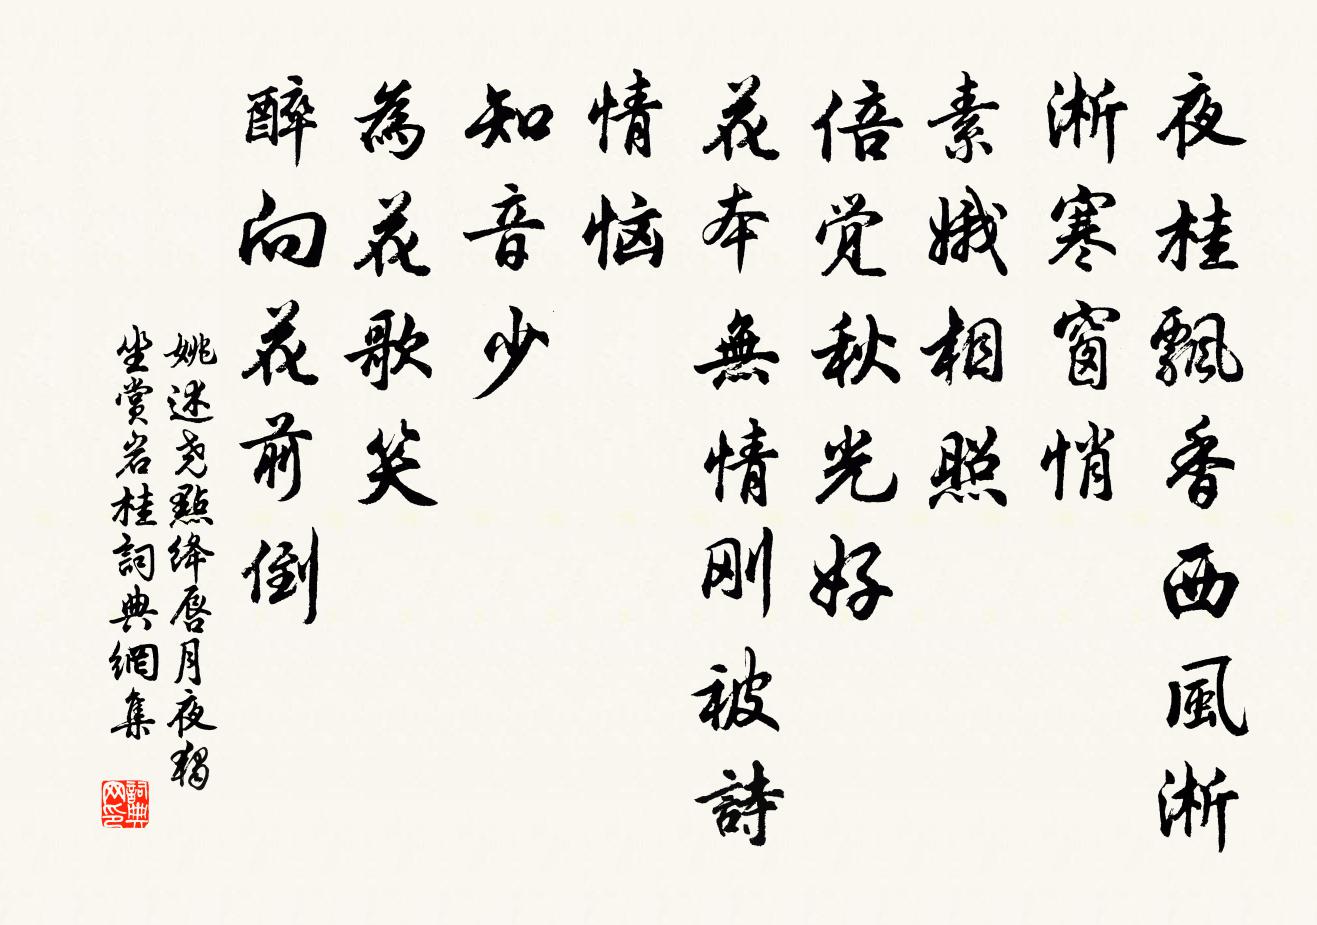 夜桂飄香西風淅
淅寒窗悄
素娥相照
倍覚秋光好
花本無情刚被詩
情恼
知音少
為花歌笑
醉向花前倒
姚述尧點绛唇月夜獨
坐賞岩桂詞典網集
詞典网印